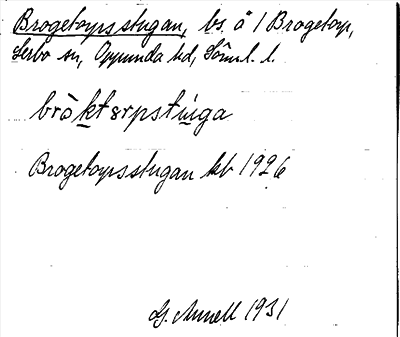 Brogetorpsstugan, bs å 1 Brogetorp,
Lerbo sn, Oppunda hd, Söml. l.
bròktərpstu̇ga
Brogetorpsstugan kb 1926
G. Annell 1931